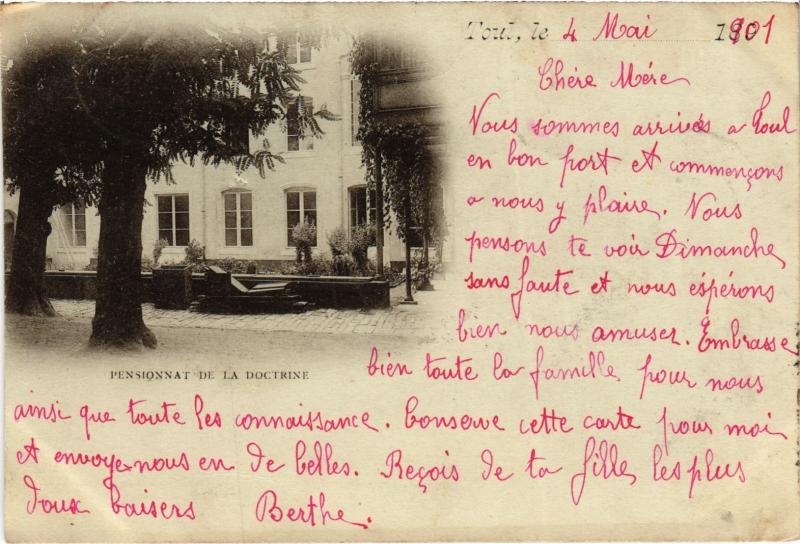 Toul, le 4 Mai 1901
Chère Mére
Nous sommes arrivés a Toul
en bon port et commençons
a nous y plaire. Nous
pensons te voir Dimanche
sans faute et nous éspérons
bien nous amuser. Embrasse
PENSIONNAT DE LA DOCTRINE
bien toute la famille pour nous
ainsi que toute les connaissance. Conserve cette carte pour moi
et envoye-nous en de belles. Reçois de ta fille les plus
doux baisers Berthe.